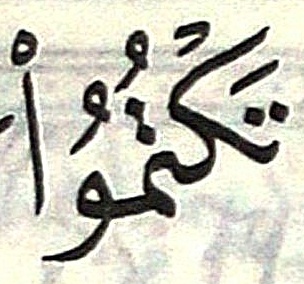 تَكْتُمُوا۟